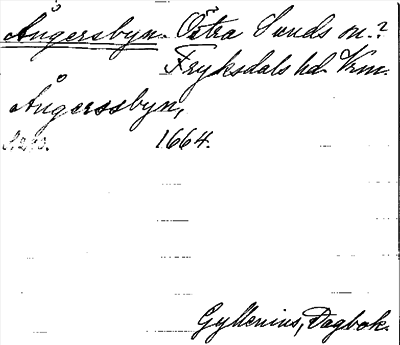 Ångersbyn. Östra Sunds sn.?
Fryksdals hd. Vrm.
Ångerssbyn,
s. 290. 1664.
Gyllenius, Dagbok.